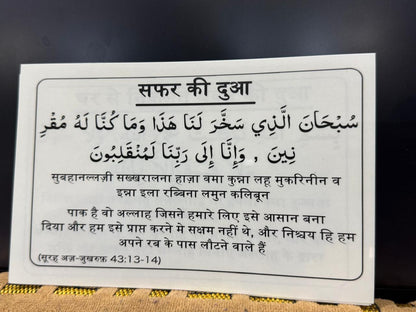 सफर की दुआ
سُبْحَانَ الَّذِي سَخَّرَ لَنَا هَذَا وَمَا كُنَّا لَهُ مُقْرِ
نِينَ , وَإِنَّا إِلَى رَبِّنَا لَمُنْقَلِبُونَ
सुबहानल्लज़ी सख्खरालना हाज़ा वमा कुन्ना लहू मुकरिनीन व
इन्ना इला रब्बिना लमुन कलिबून
पाक है वो अल्लाह जिसने हमारे लिए इसे आसान बना
दिया और हम इसे प्राप्त करने मे सक्षम नहीं थे, और निश्चय हि हम
अपने रब के पास लौटने वाले हैं
(सूरह अज़-जुखरुफ़ 43:13-14)